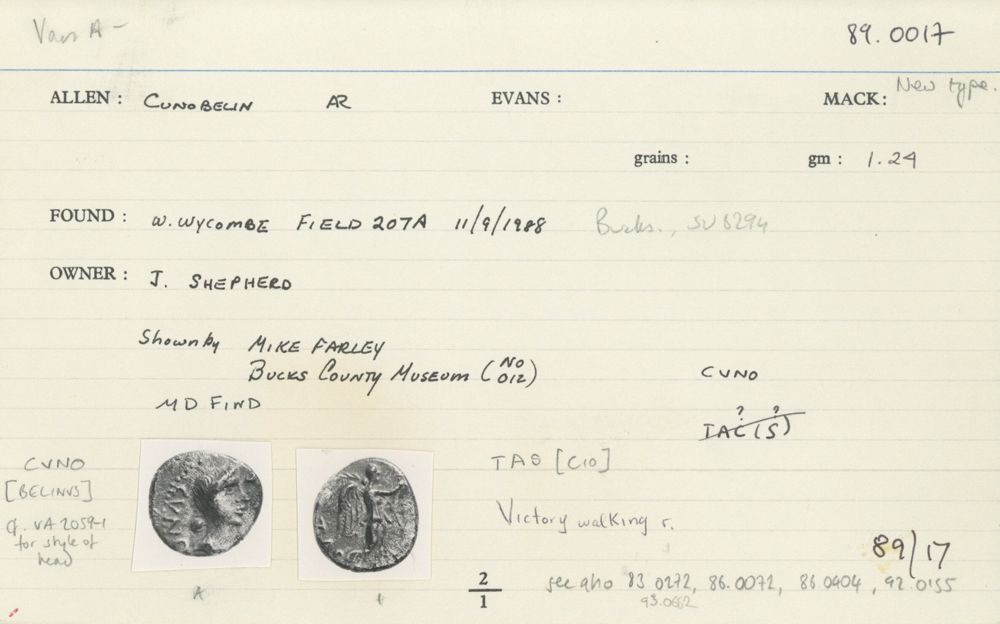 VanA - 89.0017
ALLEN : CUNOBELIN AR EVANS : MACK: New type.
grains : gm : 1.24
FOUND : W. WYCOMBE FIELD 207A 11/9/1988 Bucks., SU 8294
OWNER : J. SHEPHERD
Shown by MIKE FARLEY
BUCKS COUNTY MUSEUM (NO 012)
MD FIND
CVNO
? ?
IAC(S)
CVNO
[BELINVS]
cf. VA 2059-1
for style of
head
TAS [CIO]
Victory walking r.
89/17
2
1
see also 83.0272, 86.0072, 86.0404, 92.0155
93.0662